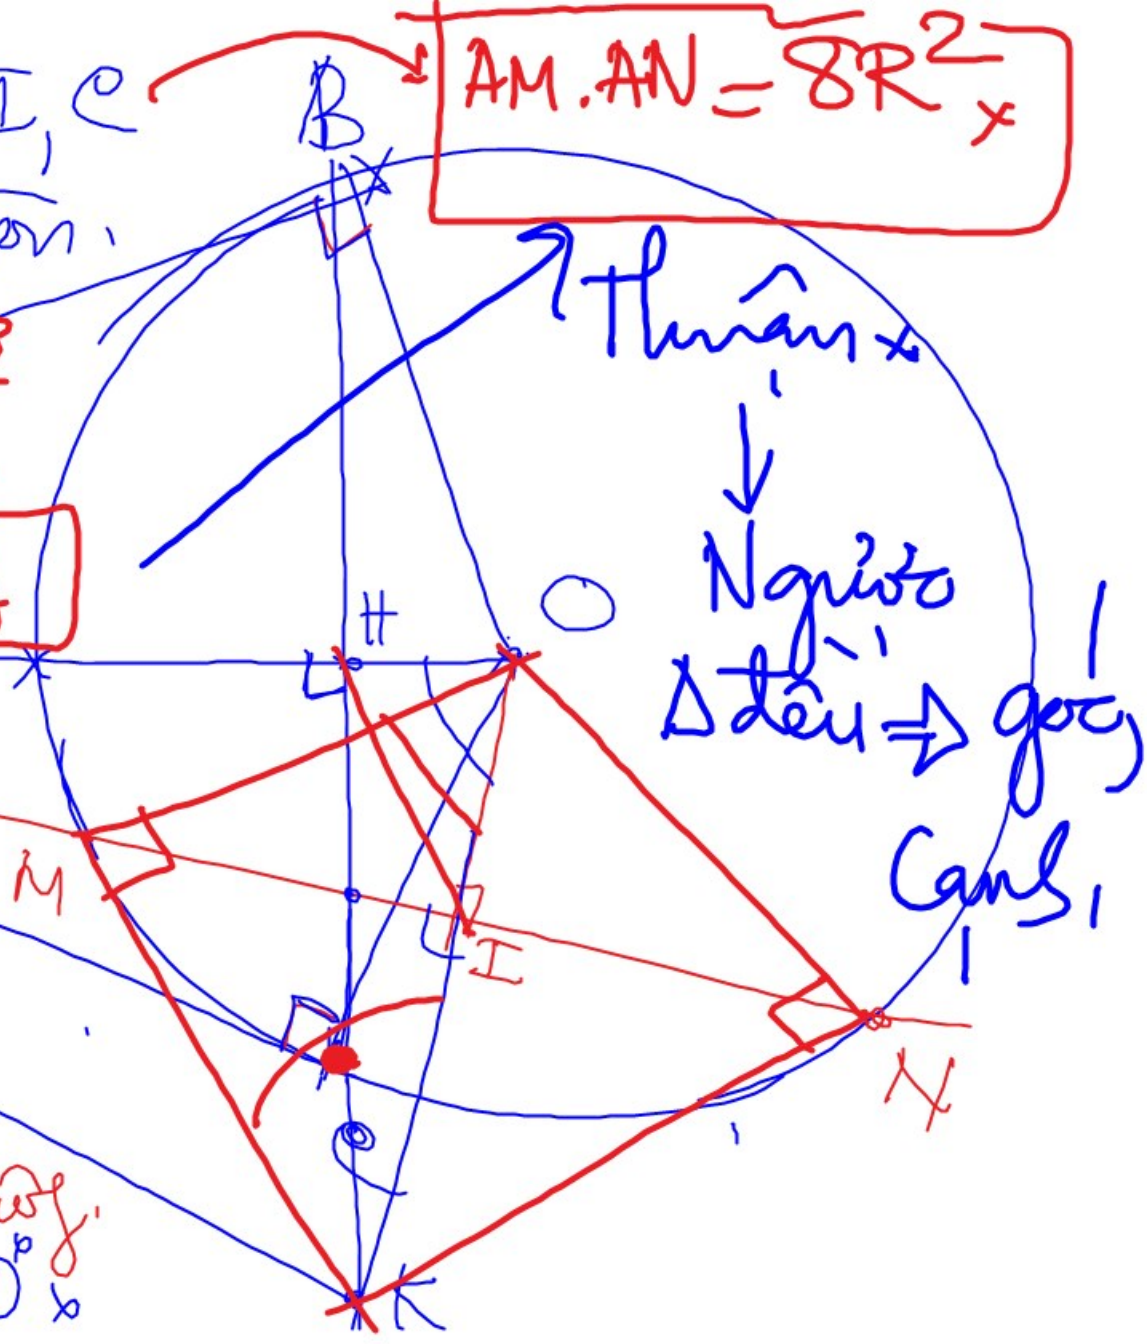 I, C
AM.AN = 8R²
B
Thuận
H
O
Ngược
Δ đều ⇒ góc,
Cạnh,
M
I
N
C
K